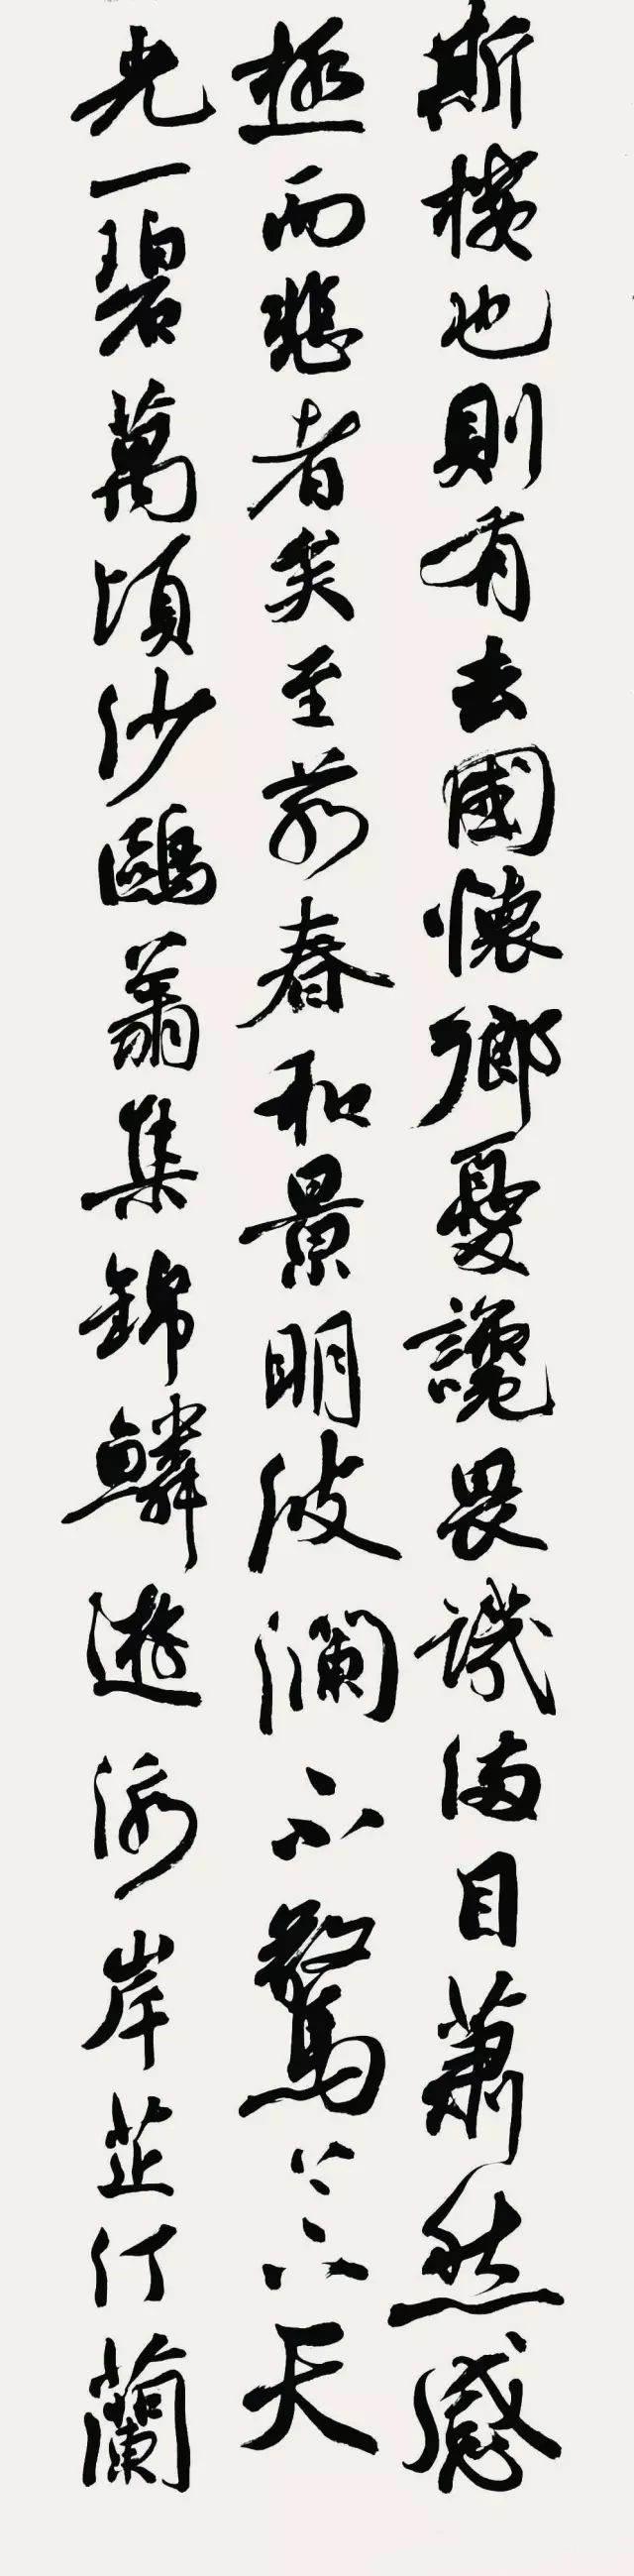 斯樓也則有去國懷鄉憂讒畏譏滿目蕭然感
極而悲者矣至若春和景明波瀾不驚上下天
光一碧萬頃沙鷗翔集錦鱗游泳岸芷汀蘭